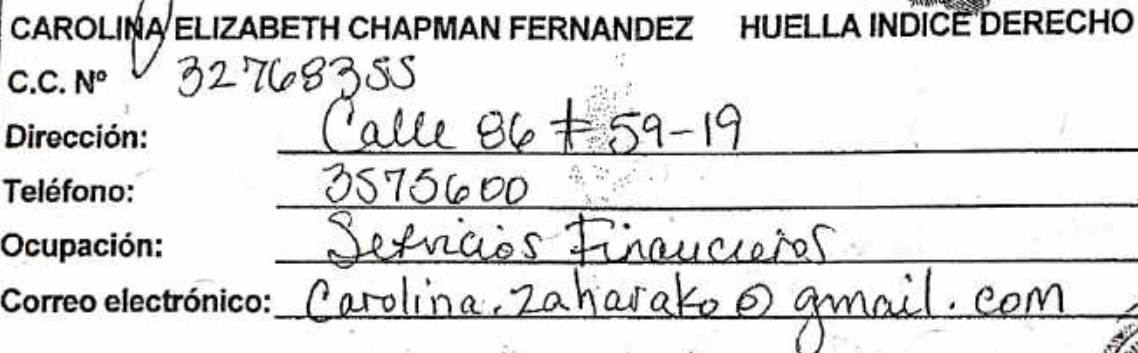 CAROLINA ELIZABETH CHAPMAN FERNANDEZ HUELLA INDICE DERECHO
C.C. Nº 32768355
Dirección: Calle 86 # 59-19
Teléfono: 3575600
Ocupación: Servicios Financieros
Correo electrónico: Carolina.zaharako@gmail.com